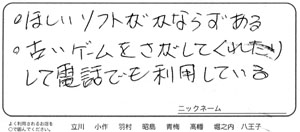 ○ほしいソフトがかならずある
○古いゲームをさがしてくれたり
して電話でも利用している
ニックネーム
よく利用されるお店を
○で囲んでください。
立川 小作 羽村 昭島 青梅 高幡 堀之内 八王子